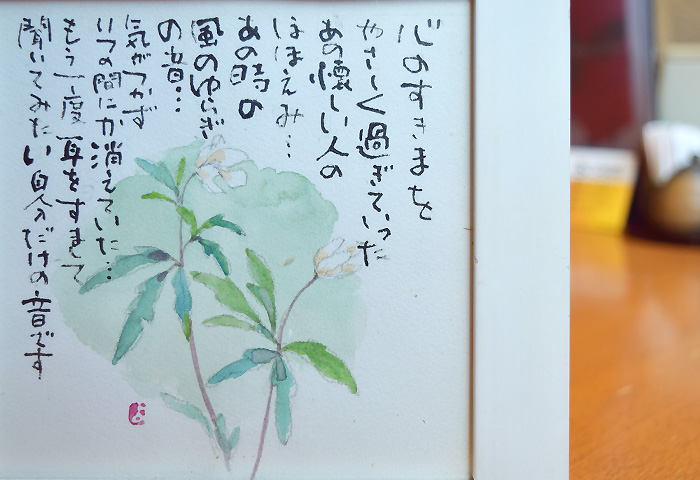 心のすきまを
やさしく過ぎていった
あの懐しい人の
ほほえみ…
あの時の
風のゆらぎ
の音…
気がつかず
いつの間にか消えていた…
もう一度耳をすまして
聞いてみたい自分だけの音です